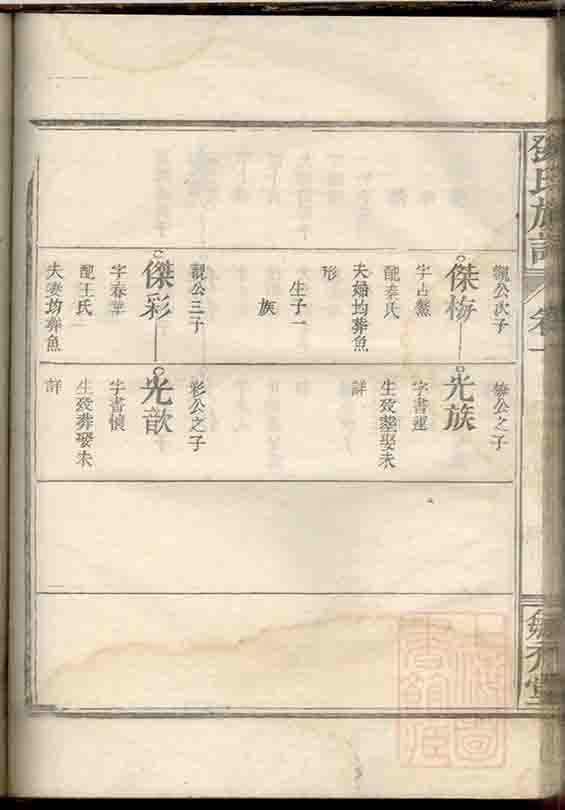 氏族譜
卷一
堂
公次子
傑梅
字占鰲
配秦氏
夫婦均葬魚
形
生子一
族
觀公三子
傑彩
字春華
配王氏
夫妻均葬魚
梅公之子
光族
字書運
生歿葬娶未
詳
彩公之子
光歆
字書慎
生歿葬娶未
詳